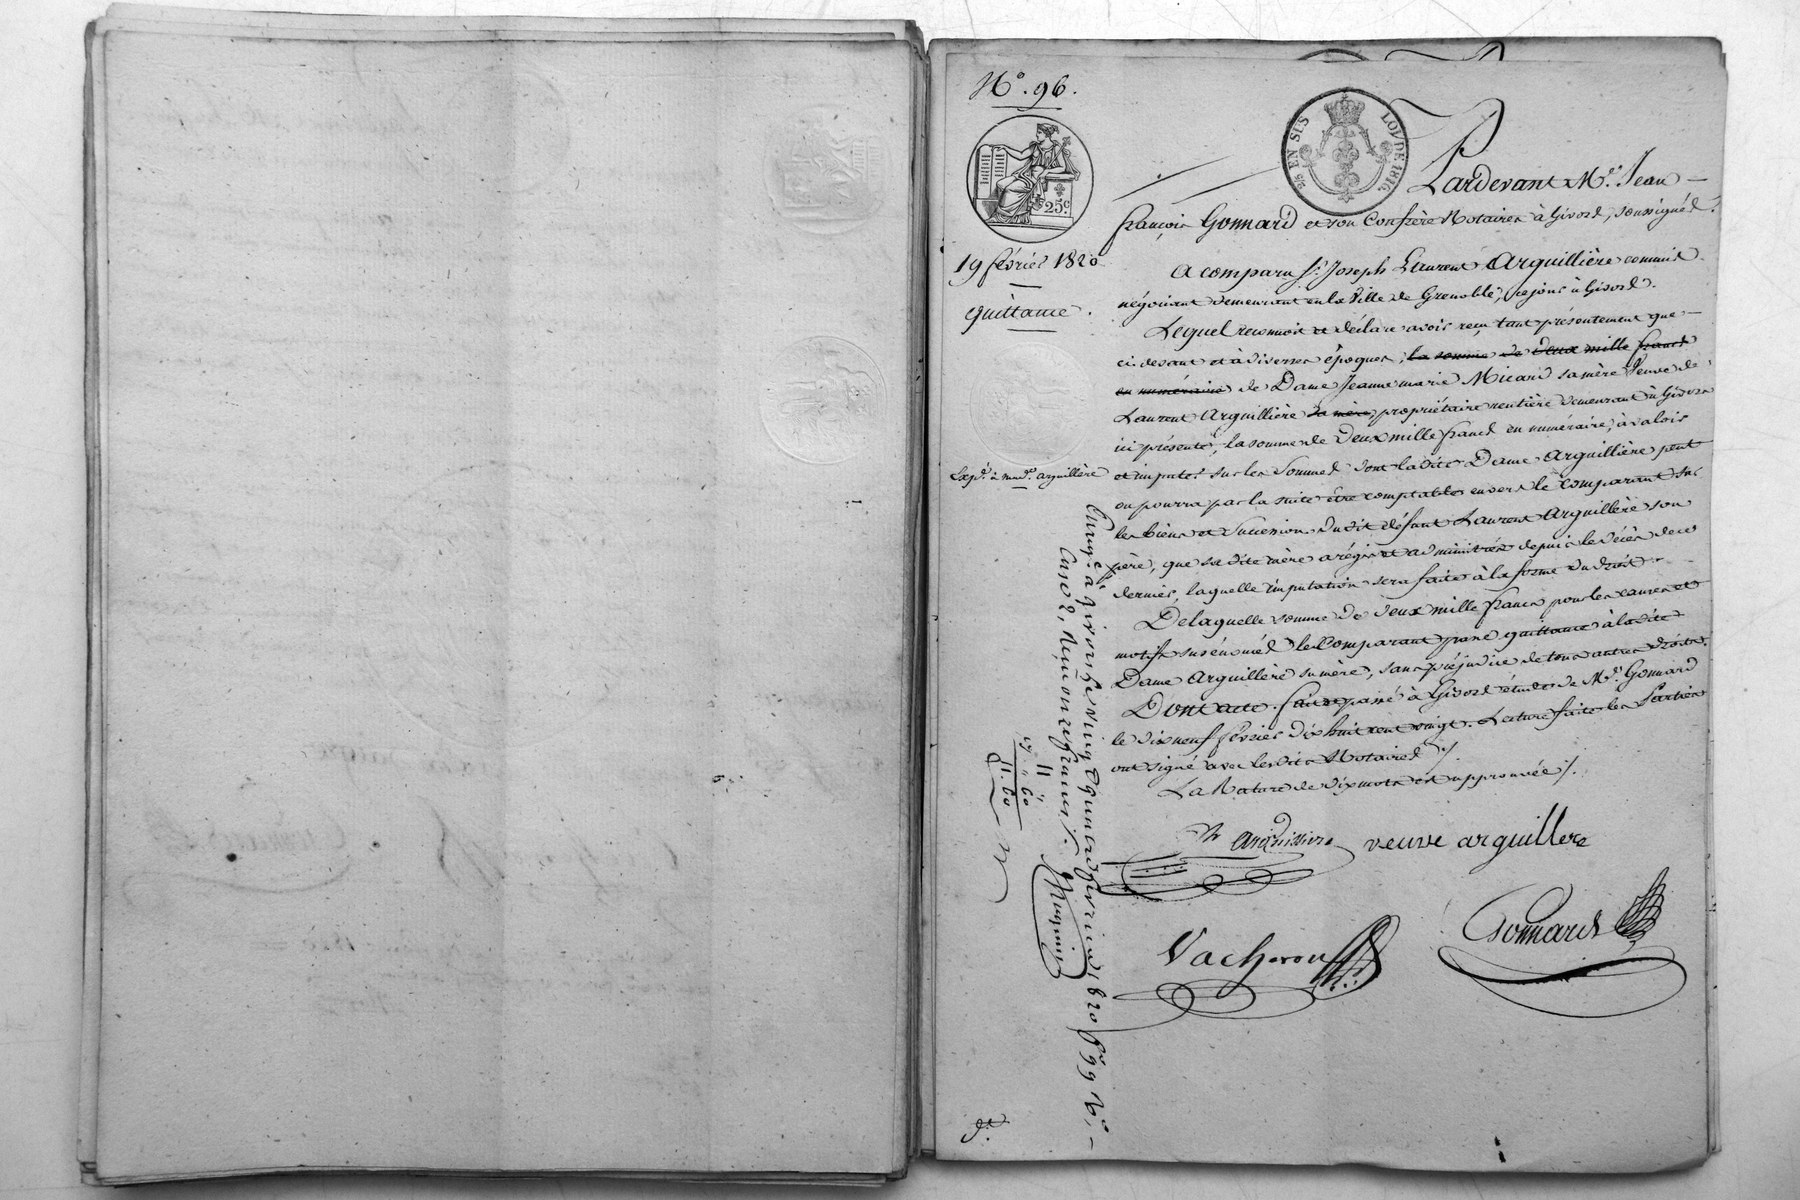 N.° 96.
25 EN SUS
LOI DE 1816
25.c
19 février 1820
quittance.
Exp.é à mad.e arguillère
Pardevant M.e Jean
françois Gonnard et son Confrère Notaires à Givors, soussignés.
A comparu S.r Joseph Laurent Arguillière commis
négociant demeurant en la Ville de Grenoble, séjour à Givors.
Lequel reconnoit et déclare avoir reçu tant présentement que
ci devant et à diverses époques, la somme de deux mille francs
en numéraire de Dame Jeanne marie Micard sa mère Veuve de
Laurent Arguillière sa mère, propriétaire rentière demeurant à Givors
ici présente, la somme de deux mille francs en numéraire, à valoir
et imputer sur les sommes dont ladite Dame Arguillière peut
ou pourra par la suite être comptable envers le comparant sur
les biens et succession dudit défunt Laurent Arguillère son
père, que sadite mère a régis et administrés depuis le décès de ce
dernier, laquelle imputation sera faite à la forme du droit.
De laquelle somme de deux mille francs pour les causes et
motifs susénoncés le Comparant passe quittance à ladite
Dame Arguillère sa mère, sans préjudice de tous autres droits.
Dont acte. fait et passé à Givors étude de M.e Gonnard
le dix neuf février dix huit cent vingt. Lecture faite les Parties
ont signé avec lesdits Notaires ./.
La Rature de dix mots est approuvée ./.
arguillière veuve arguillere
Vacheron Gonnard
Enreg.é à givors le vingt quatre février 1820 f.o 99 v.o
Case 2, Reçu onze francs
11
11. 60